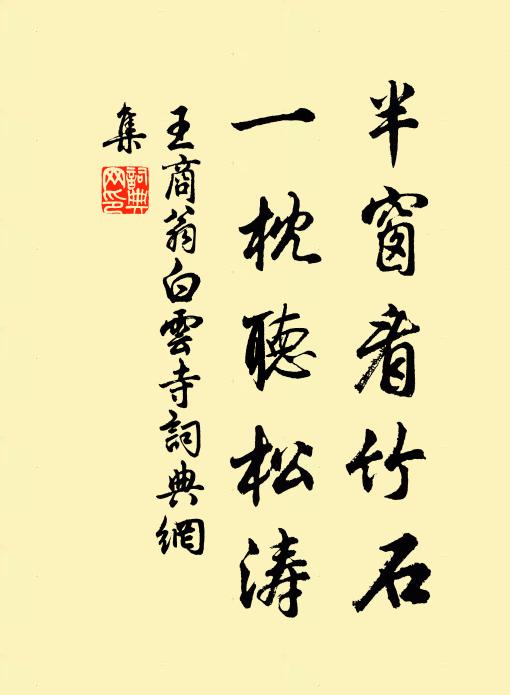 半窗看竹石
一枕聽松濤
王商翁白雲寺詞典網
集
詞典
网印